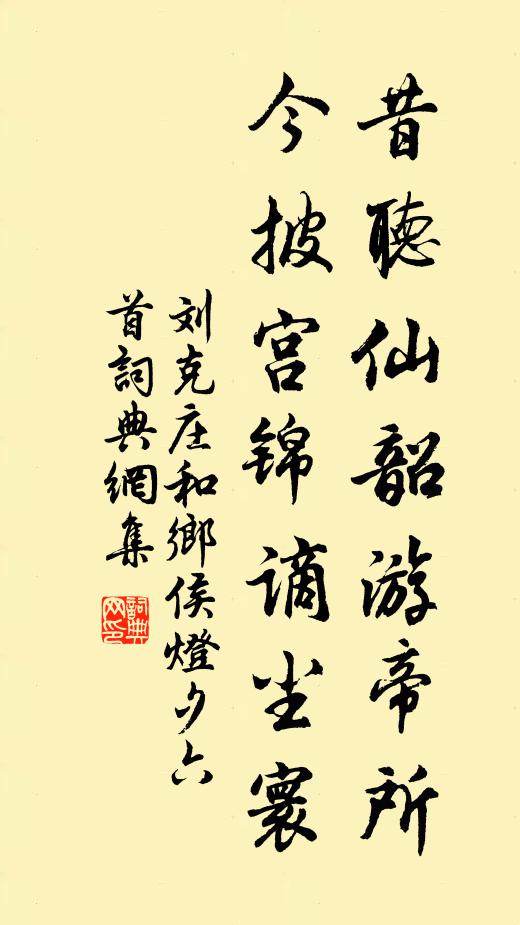 昔聽仙韶游帝所
今披宫锦谪尘寰
刘克庄和鄉侯燈夕六
首詞典網集
詞典网印